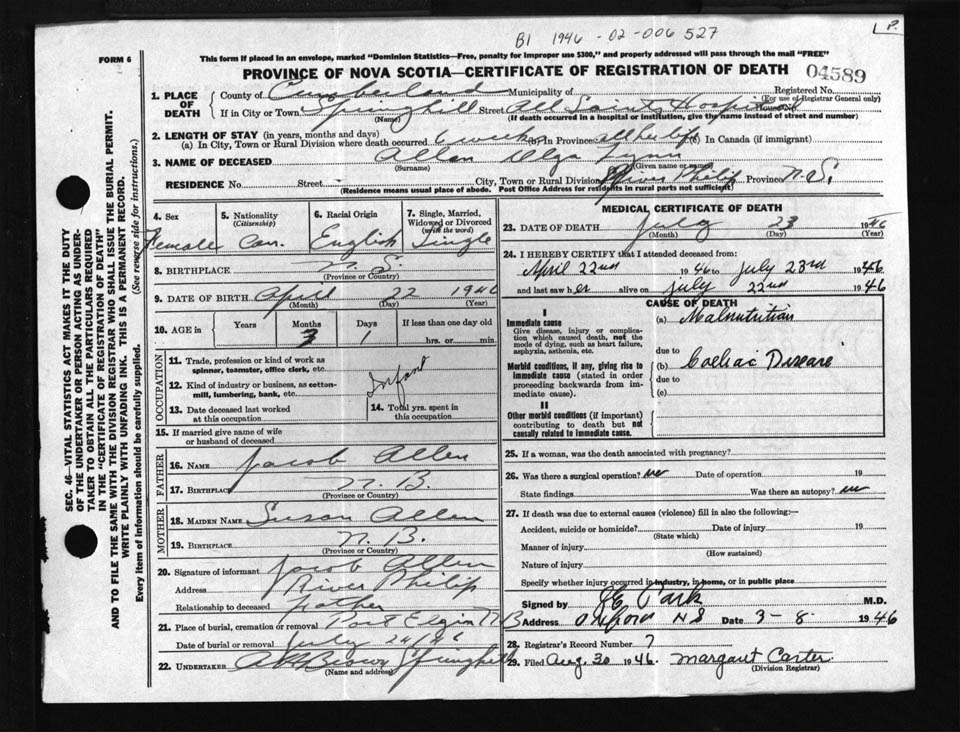 B1 1946 - 02 - 006 527
L P.
FORM 6
This form if placed in an envelope, marked "Dominion Statistics—Free, penalty for improper use $300," and properly addressed will pass through the mail "FREE"
PROVINCE OF NOVA SCOTIA—CERTIFICATE OF REGISTRATION OF DEATH 04589
1. PLACE OF DEATH
County of Cumberland Municipality of Registered No.
(For use of Registrar General only)
If in City or Town Springhill Street All Saints Hospital
(Name) (If death occurred in a hospital or institution, give the name instead of street and number)
2. LENGTH OF STAY (in years, months and days)
(a) In City, Town or Rural Division where death occurred 6 weeks (b) In Province all her life (c) In Canada (if immigrant)
3. NAME OF DECEASED Allen Lynn
(Surname) (Given name or names)
RESIDENCE No. Street City, Town or Rural Division River Philip Province N.S.
(Residence means usual place of abode. Post Office Address for residents in rural parts not sufficient)
4. Sex Female
5. Nationality (Citizenship) Can.
6. Racial Origin English
7. Single, Married, Widowed or Divorced (write the word) Single
8. BIRTHPLACE N. S.
(Province or Country)
9. DATE OF BIRTH April 22 1946
(Month) (Day) (Year)
10. AGE in Years Months 3 Days 1 If less than one day old hrs. or min.
OCCUPATION
11. Trade, profession or kind of work as spinner, teamster, office clerk, etc.
Infant
12. Kind of industry or business, as cotton-mill, lumbering, bank, etc.
13. Date deceased last worked at this occupation
14. Total yrs. spent in this occupation
15. If married give name of wife or husband of deceased
FATHER
16. NAME Jacob Allen
17. BIRTHPLACE N. B.
(Province or Country)
MOTHER
18. MAIDEN NAME Susan Allen
19. BIRTHPLACE N. B.
(Province or Country)
20. Signature of informant Jacob Allen
Address River Philip
Relationship to deceased father
21. Place of burial, cremation or removal Port Elgin N B
Date of burial or removal July 24/46
22. UNDERTAKER Brown Springhill
(Name and address)
MEDICAL CERTIFICATE OF DEATH
23. DATE OF DEATH July 23 1946
(Month) (Day) (Year)
24. I HEREBY CERTIFY that I attended deceased from:
April 22nd 1946 to July 23rd 1946
and last saw her alive on July 22nd 1946
CAUSE OF DEATH
I
Immediate cause
Give disease, injury or complication which caused death, not the mode of dying, such as heart failure, asphyxia, asthenia, etc.
(a) Malnutrition
due to
Morbid conditions, if any, giving rise to immediate cause (stated in order proceeding backwards from immediate cause).
(b) Coeliac Disease
due to
(c)
II
Other morbid conditions (if important) contributing to death but not causally related to immediate cause.
25. If a woman, was the death associated with pregnancy?
26. Was there a surgical operation? no Date of operation 19
State findings Was there an autopsy? no
27. If death was due to external causes (violence) fill in also the following:—
Accident, suicide or homicide? Date of injury 19
(State which)
Manner of injury
(How sustained)
Nature of injury
Specify whether injury occurred in industry, in home, or in public place
Signed by J E Park M.D.
Address Oxford N S Date 3 - 8 - 1946
28. Registrar's Record Number 7
29. Filed Aug. 30 1946. Margaret Carter
(Division Registrar)
SEC. 46—VITAL STATISTICS ACT MAKES IT THE DUTY
OF THE UNDERTAKER OR PERSON ACTING AS UNDER-
TAKER TO OBTAIN ALL THE PARTICULARS REQUIRED
IN THE "CERTIFICATE OF REGISTRATION OF DEATH"
AND TO FILE THE SAME WITH THE DIVISION REGISTRAR WHO SHALL ISSUE THE BURIAL PERMIT.
WRITE PLAINLY WITH UNFADING INK. THIS IS A PERMANENT RECORD.
Every item of information should be carefully supplied. (See reverse side for instructions.)